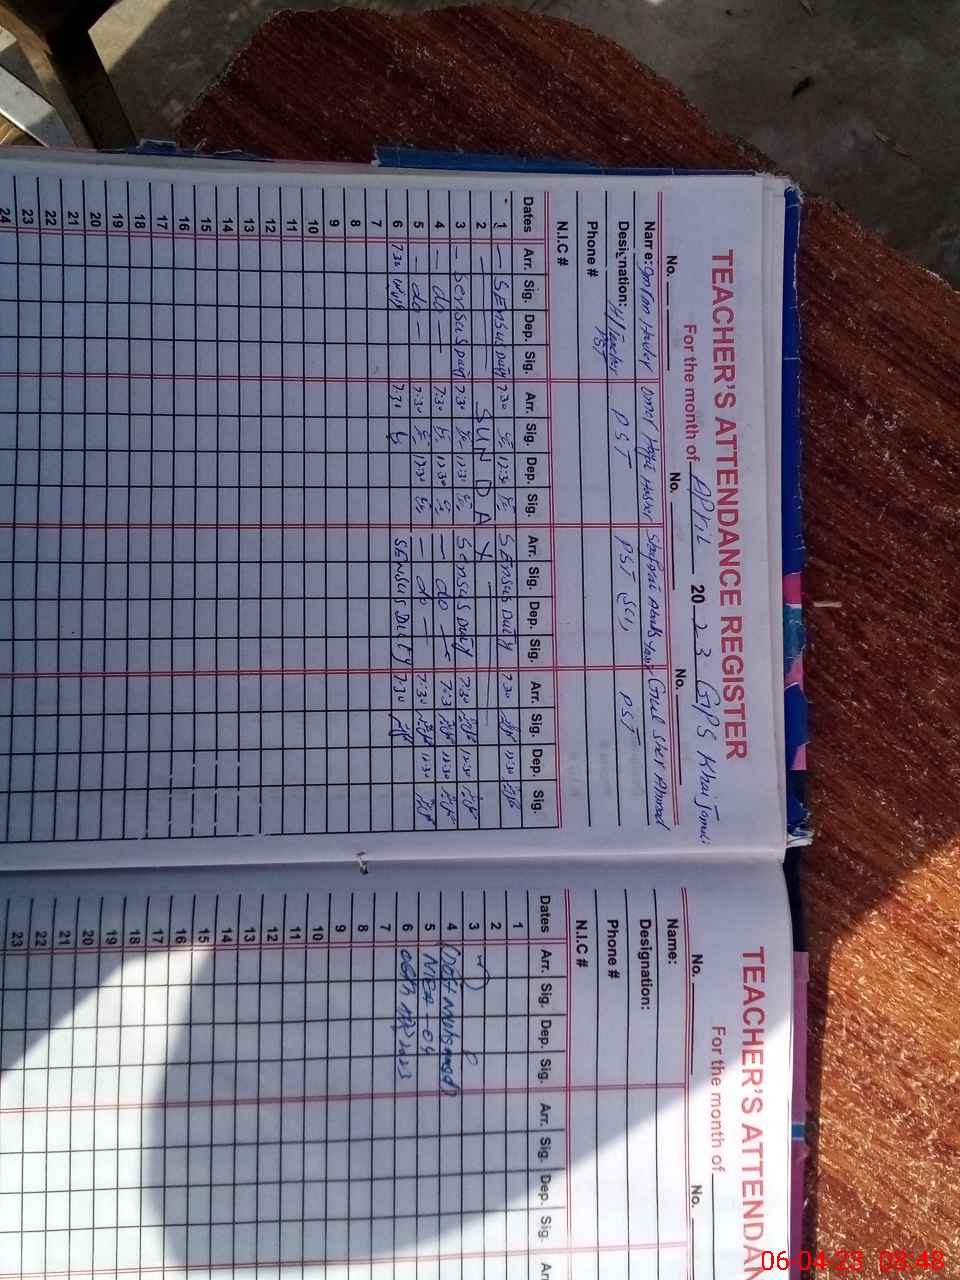 TEACHER'S ATTENDANCE REGISTER
For the month of April 2023 GPS Khai Jamali
No. No. No.
Name: Omer Gul Sher Ahmad
Designation: H/Teacher PST PST PST PST
Phone #
N.I.C #
Dates Arr. Sig. Dep. Sig. Arr. Sig. Dep. Sig. Arr. Sig. Dep. Sig. Arr. Sig. Dep. Sig.
1 — SEnsus Duty 7:30 12:30 SEnsus Duty 7:30 12:30
2 SUNDAY
3 — Sensus Duty 7:30 12:30 Sensus Duty 7:30 12:30
4 — do — 7:30 12:30 — do — 7:30 12:30
5 — do — 7:30 12:30 — do — 7:30 12:30
6 7:30 7:31 SENSUS DUTY 7:30
7
8
9
10
11
12
13
14
15
16
17
18
19
20
21
22
23
24
TEACHER'S ATTENDAN
For the month of
No. No.
Name:
Designation:
Phone #
N.I.C #
Dates Arr. Sig. Dep. Sig. Arr. Sig. Dep. Sig. Arr.
1
2
3
4
5 MEA-04
6 06th 2023
7
8
9
10
11
12
13
14
15
16
17
18
19
20
21
22
23
06-04-23 08:48